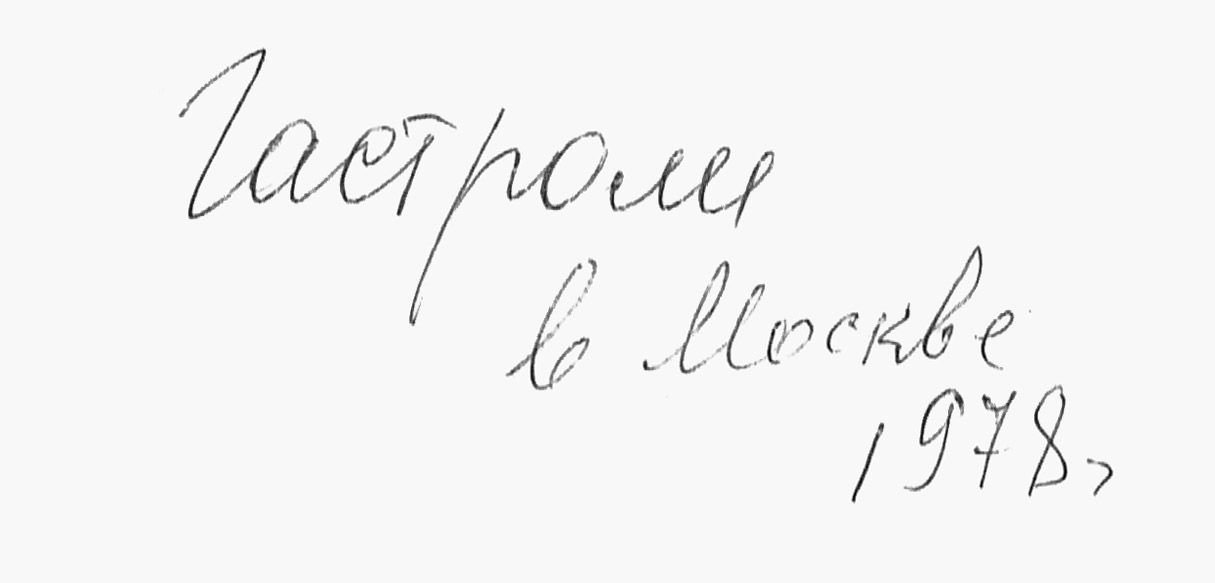 Гастроли
в Москве
1978г